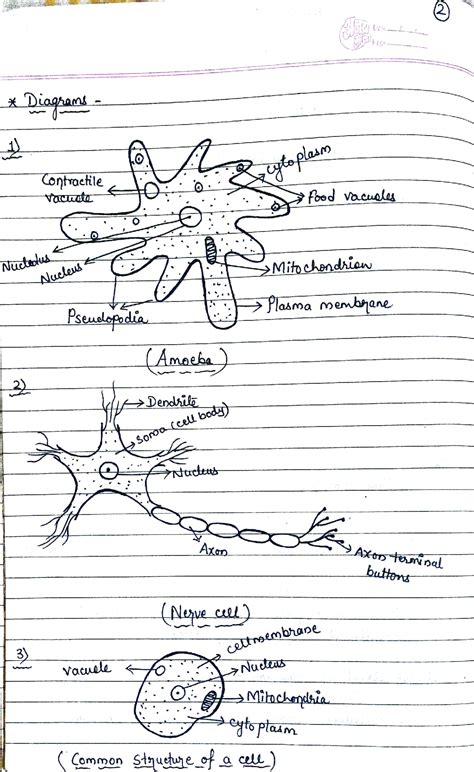 2
* Diagrams -
1)
Cytoplasm
Contractile
vacuole
Food vacuoles
Nucleolus
Nucleus
Mitochondrion
Plasma membrane
Pseudopodia
(Amoeba)
2)
Dendrite
Soma (cell body)
Nucleus
Axon
Axon terminal
buttons
(Nerve cell)
3)
cell membrane
vacuole
Nucleus
Mitochondria
cytoplasm
(Common structure of a cell)